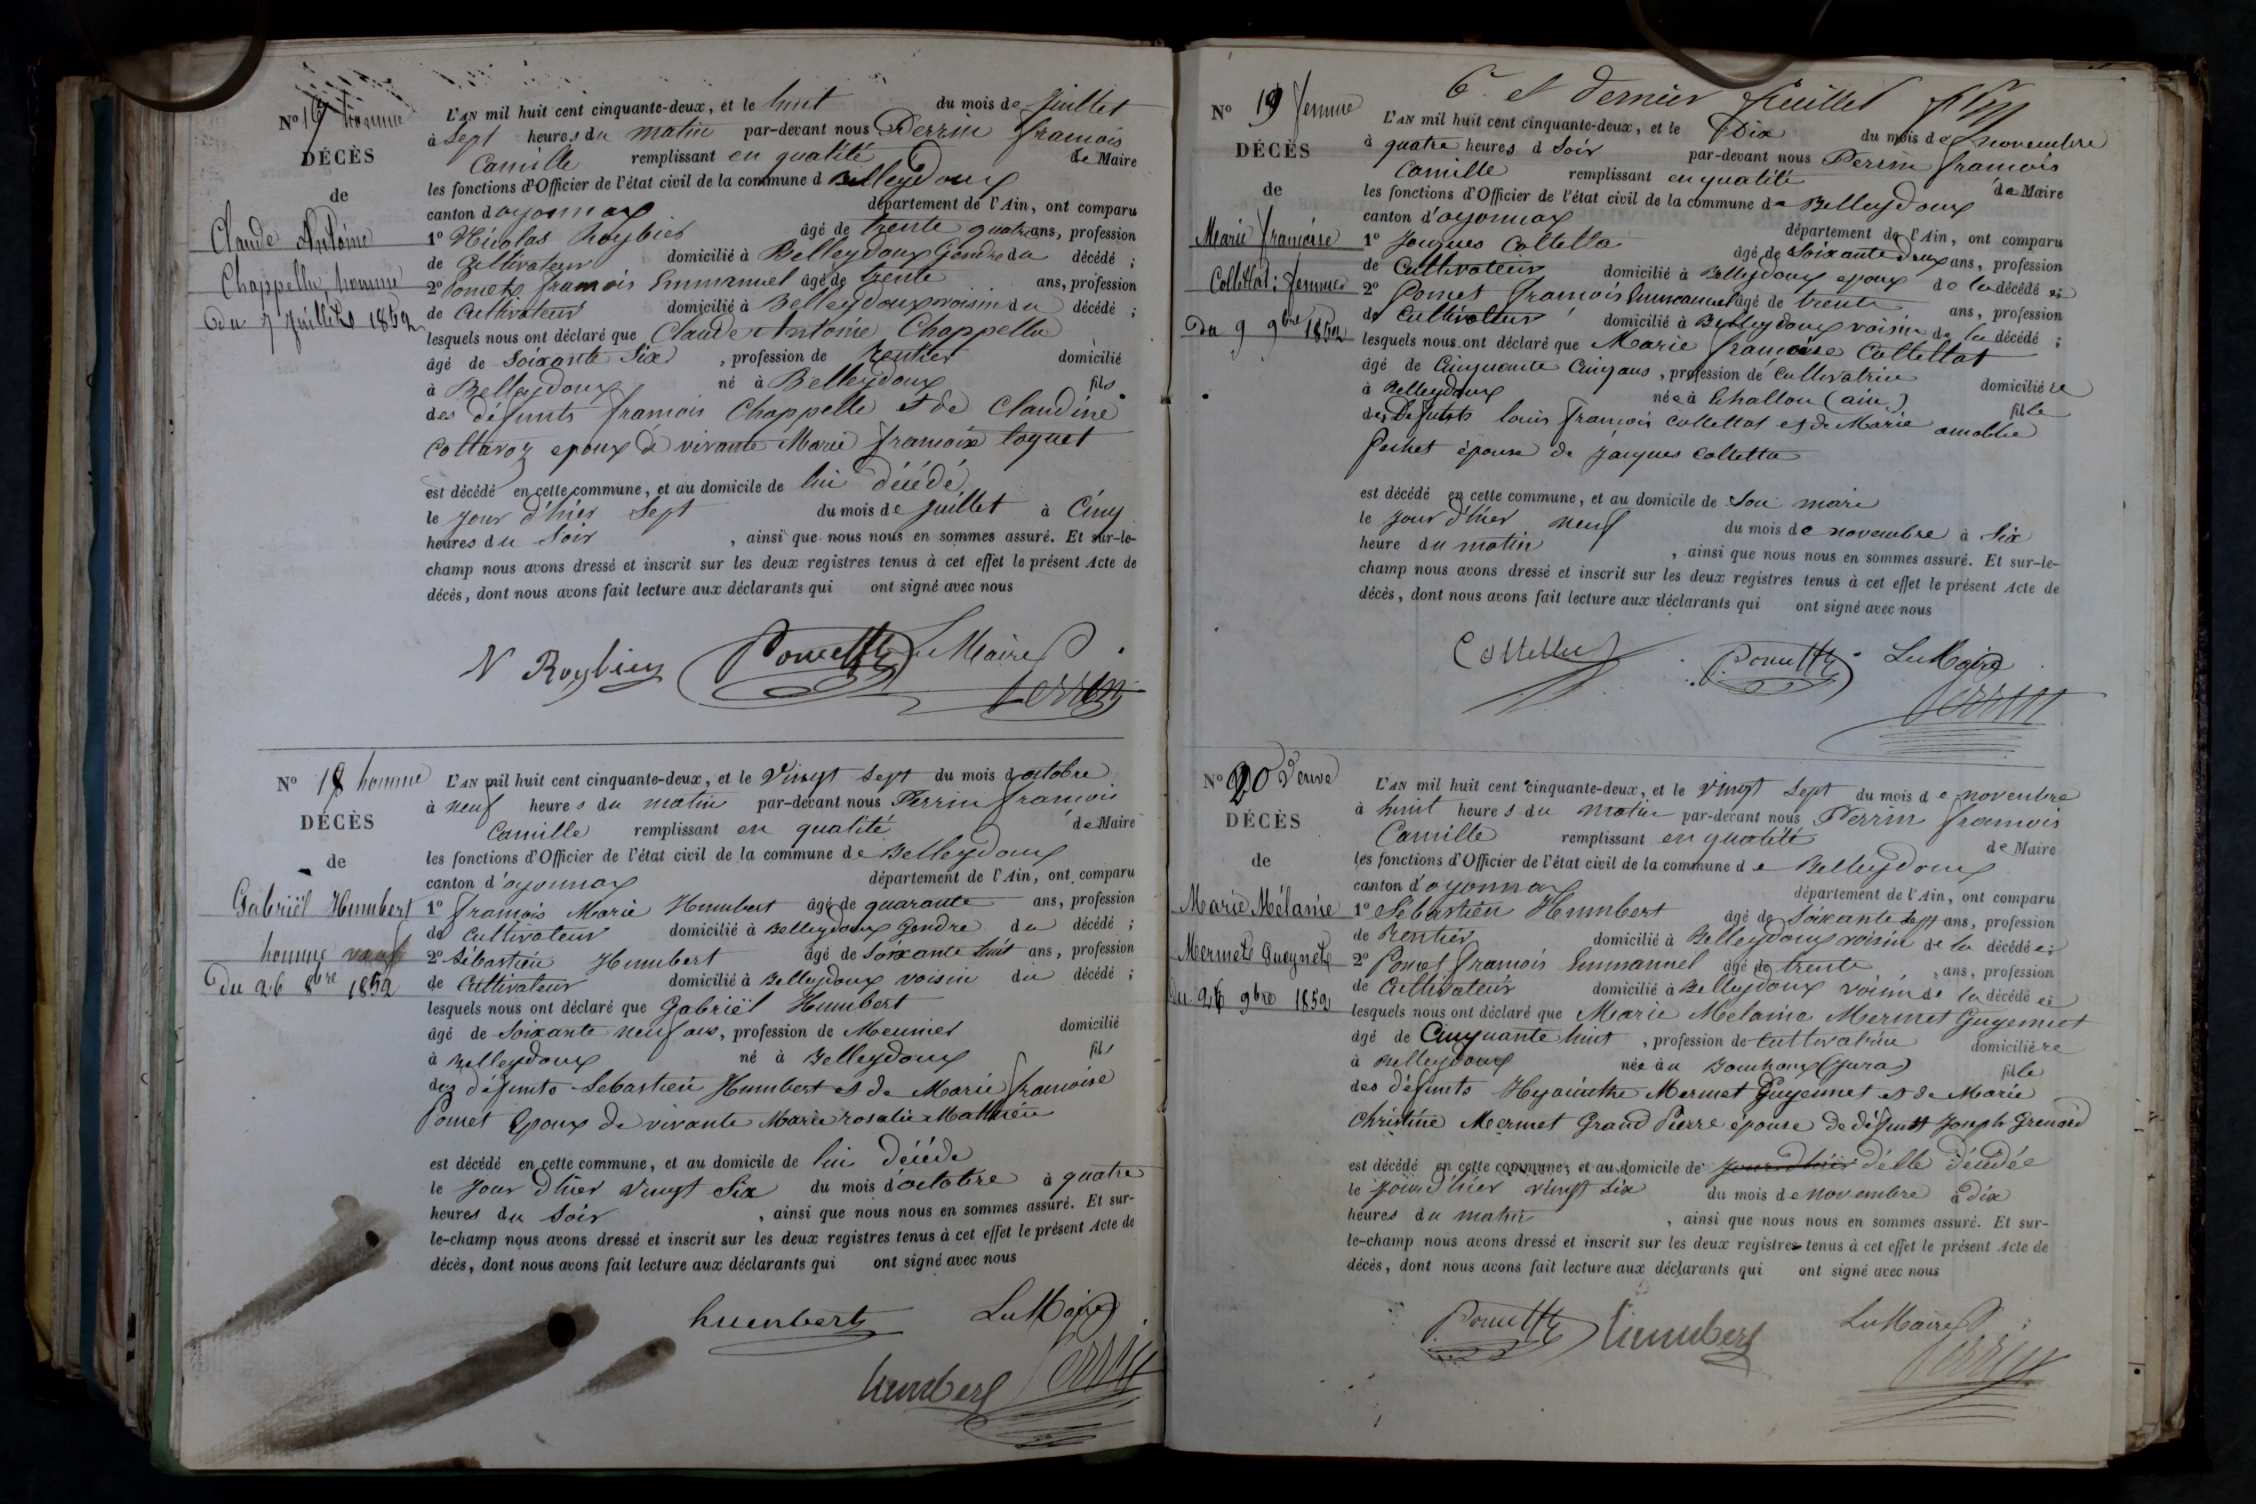 N° 17 homme
DÉCÈS
de
Claude Antoine
Chappellu, homme
Du 7 Juillets 1852
L'AN mil huit cent cinquante-deux, et le huit du mois de Juillet
à sept heures du matin par-devant nous Perrin francois
Camille remplissant en qualité de Maire
les fonctions d'Officier de l'état civil de la commune d Belleydoux
canton d'oyonnax département de l'Ain, ont comparu
1° Nicolas Roybier âgé de trente quatre ans, profession
de Cultivateur domicilié à Belleydoux Gendre du décédé ;
2° Pomets francois Emmanuel âgé de trente ans, profession
de Cultivateur domicilié à Belleydoux voisin du décédé ;
lesquels nous ont déclaré que Claude Antoine Chappellu
âgé de Soixante Six , profession de Rentier domicilié
à Belleydoux né à Belleydoux fils
des défunts francois Chappelle & de Claudine
Cottavoz epoux de vivante Marie francoise loquet
est décédé en cette commune, et au domicile de lui décédé
le jour d'hier Sept du mois de juillet à Cinq
heures du Soir , ainsi que nous nous en sommes assuré. Et sur-le-
champ nous avons dressé et inscrit sur les deux registres tenus à cet effet le présent Acte de
décès, dont nous avons fait lecture aux déclarants qui ont signé avec nous
N Roybier Pometts Le Maire
Perrin
N° 18 homme
DÉCÈS
de
Gabriël Humbert
homme veuf
Du 26 8bre 1852
L'AN mil huit cent cinquante-deux, et le Vingt Sept du mois d'octobre
à neuf heures du matin par-devant nous Perrin francois
Camille remplissant en qualité de Maire
les fonctions d'Officier de l'état civil de la commune de Belleydoux
canton d'oyonnax département de l'Ain, ont comparu
1° francois Marie Humbert âgé de quarante ans, profession
de Cultivateur domicilié à Belleydoux Gendre du décédé ;
2° Sébastien Humbert âgé de Soixante huit ans, profession
de Cultivateur domicilié à Belleydoux voisin du décédé ;
lesquels nous ont déclaré que Gabriël Humbert
âgé de Soixante neuf ans, profession de Meunier domicilié
à Belleydoux né à Belleydoux fils
des défunts Sebastien Humbert et de Marie francoise
Pomet Epoux de vivante Marie rosalie Mathieu
est décédé en cette commune, et au domicile de lui décédé
le jour d'hier vingt Six du mois d'octobre à quatre
heures du Soir , ainsi que nous nous en sommes assuré. Et sur-
le-champ nous avons dressé et inscrit sur les deux registres tenus à cet effet le présent Acte de
décès, dont nous avons fait lecture aux déclarants qui ont signé avec nous
humberts Le Maire
humbert Perrin
6e et dernier feuillet
N° 19 femme
DÉCÈS
de
Marie francoise
Collettat : femme
Du 9 9bre 1852
L'AN mil huit cent cinquante-deux, et le Dix du mois de novembre
à quatre heures d Soir par-devant nous Perrin francois
Camille remplissant en qualité de Maire
les fonctions d'Officier de l'état civil de la commune de Belleydoux
canton d'oyonnax département de l'Ain, ont comparu
1° Jacques Colletta âgé de Soixante deux ans, profession
de Cultivateur domicilié à Belleydoux epoux de la décédé e;
2° Pomet francois Emmanuel âgé de trente ans, profession
de Cultivateur domicilié à Belleydoux voisin de la décédé ;
lesquels nous ont déclaré que Marie francoise Collettat
âgé de Cinquante Cinq ans, profession de Cultivatrice domicilié re
à Belleydoux née à Echallon (ain) fille
des Défunts louis francois Collettat et de Marie amablie
Pochet épouse de Jacques Colletta
est décédé en cette commune, et au domicile de Son mari
le jour d'hier neuf du mois de novembre à Six
heure du matin , ainsi que nous nous en sommes assuré. Et sur-le-
champ nous avons dressé et inscrit sur les deux registres tenus à cet effet le présent Acte de
décès, dont nous avons fait lecture aux déclarants qui ont signé avec nous
Colletta Pometts Le Maire
Perrin
N° 20 Veuve
DÉCÈS
de
Marie Mélanie
Mermets Gueynets
Du 26 9bre 1852
L'AN mil huit cent cinquante-deux, et le vingt Sept du mois de novembre
à huit heures du Matin par-devant nous Perrin francois
Camille remplissant en qualité de Maire
les fonctions d'Officier de l'état civil de la commune de Belleydoux
canton d'oyonnax département de l'Ain, ont comparu
1° Sébastien Humbert âgé de Soixante Sept ans, profession
de Rentier domicilié à Belleydoux voisin de la décédé e;
2° Pomet francois Emmanuel âgé de trente ans, profession
de Cultivateur domicilié à Belleydoux voisin de la décédé e;
lesquels nous ont déclaré que Marie Melanie Mermet Guyennet
âgé de Cinquante huit , profession de Cultivatrice domicilié re
à Belleydoux née au Bouchoux (jura) fille
des défunts Hyacinthe Mermet Guyennet et de Marie
Christine Mermet Grand Pierre épouse de défunt Joseph Grenard
est décédé en cette commune, et au domicile de jour d'hier d'elle décédée
le jour d'hier vingt Six du mois de novembre à dix
heures du matin , ainsi que nous nous en sommes assuré. Et sur-
le-champ nous avons dressé et inscrit sur les deux registres tenus à cet effet le présent Acte de
décès, dont nous avons fait lecture aux déclarants qui ont signé avec nous
Pometts humbert Le Maire
Perrin